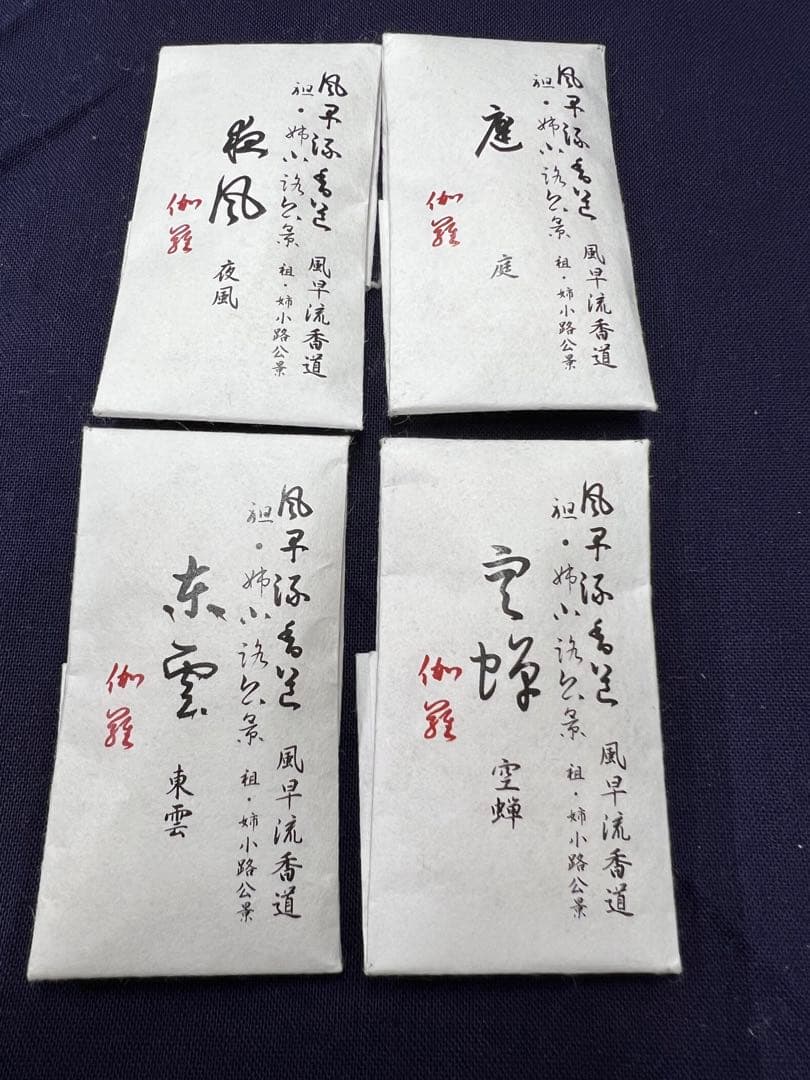 風早流香道
風早流香道
祖・姉小路公景
祖・姉小路公景
庭
庭
伽羅
風早流香道
風早流香道
祖・姉小路公景
祖・姉小路公景
夜風
夜風
伽羅
風早流香道
風早流香道
祖・姉小路公景
祖・姉小路公景
空蝉
空蟬
伽羅
風早流香道
風早流香道
祖・姉小路公景
祖・姉小路公景
东雲
東雲
伽羅